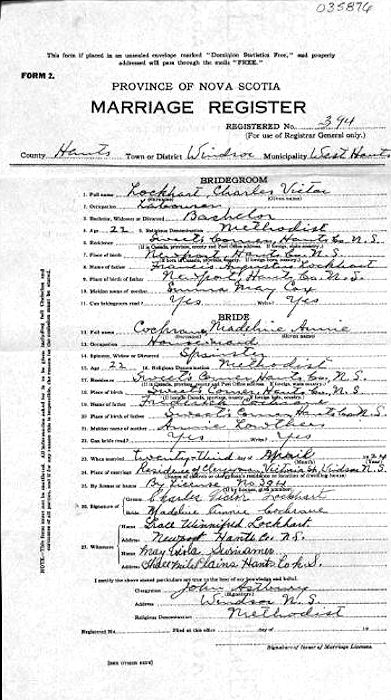 035876
This form if placed in an unsealed envelope marked "Dominion Statistics Free," and properly
addressed will pass through the mails "FREE."
FORM 2.
PROVINCE OF NOVA SCOTIA
MARRIAGE REGISTER
REGISTERED No. 394
(For use of Registrar General only.)
County Hants Town or District Windsor Municipality West Hants
BRIDEGROOM
1. Full name Lockhart Charles Victor
(Surname) (Given name)
2. Occupation Labourer
3. Bachelor, Widower or Divorced Bachelor
4. Age 22 5. Religious Denomination Methodist
6. Residence Sweets Corner, Hants Co. N.S.
7. Place of birth Newport Hants Co. N.S.
8. Name of father Francis Augustus Lockhart
9. Place of birth of father Newport Hants Co. N.S.
10. Maiden name of mother May Cox
11. Can bridegroom read? Yes Write? Yes
BRIDE
12. Full name Cochrane Madeline Annie
(Surname) (Given name)
13. Occupation Housemaid
14. Spinster, Widow or Divorced Spinster
15. Age 22 16. Religious Denomination Methodist
17. Residence Sweets Corner, Hants Co., N.S.
18. Place of birth Sweets Corner, Hants Co. N.S.
19. Name of father Cochrane
20. Place of birth of father Sweet's Corner, Hants Co. N.S.
21. Maiden name of mother Annie Lowthers
22. Can bride read? Yes Write? Yes
23. When married Twenty-third of April
24. Place of marriage Residence of Clergyman, Victoria St, Windsor N.S.
25. By license or banns By License No. 394
26. Signature of Groom Charles Victor Lockhart
Bride Madeline Annie Cochrane
27. Witnesses Name Grace Winnifred Lockhart
Address Newport Hants Co. N.S.
Name May
Address Three Mile Plains Hants Co. N.S.
I certify the above stated particulars are true to the best of my knowledge and belief.
Clergyman John
(Signature)
Address Windsor N.S.
Religious Denomination Methodist
Registered No. Filed at this office day of 19
Signature of Issuer of Marriage Licenses.
[SEE OTHER SIDE]